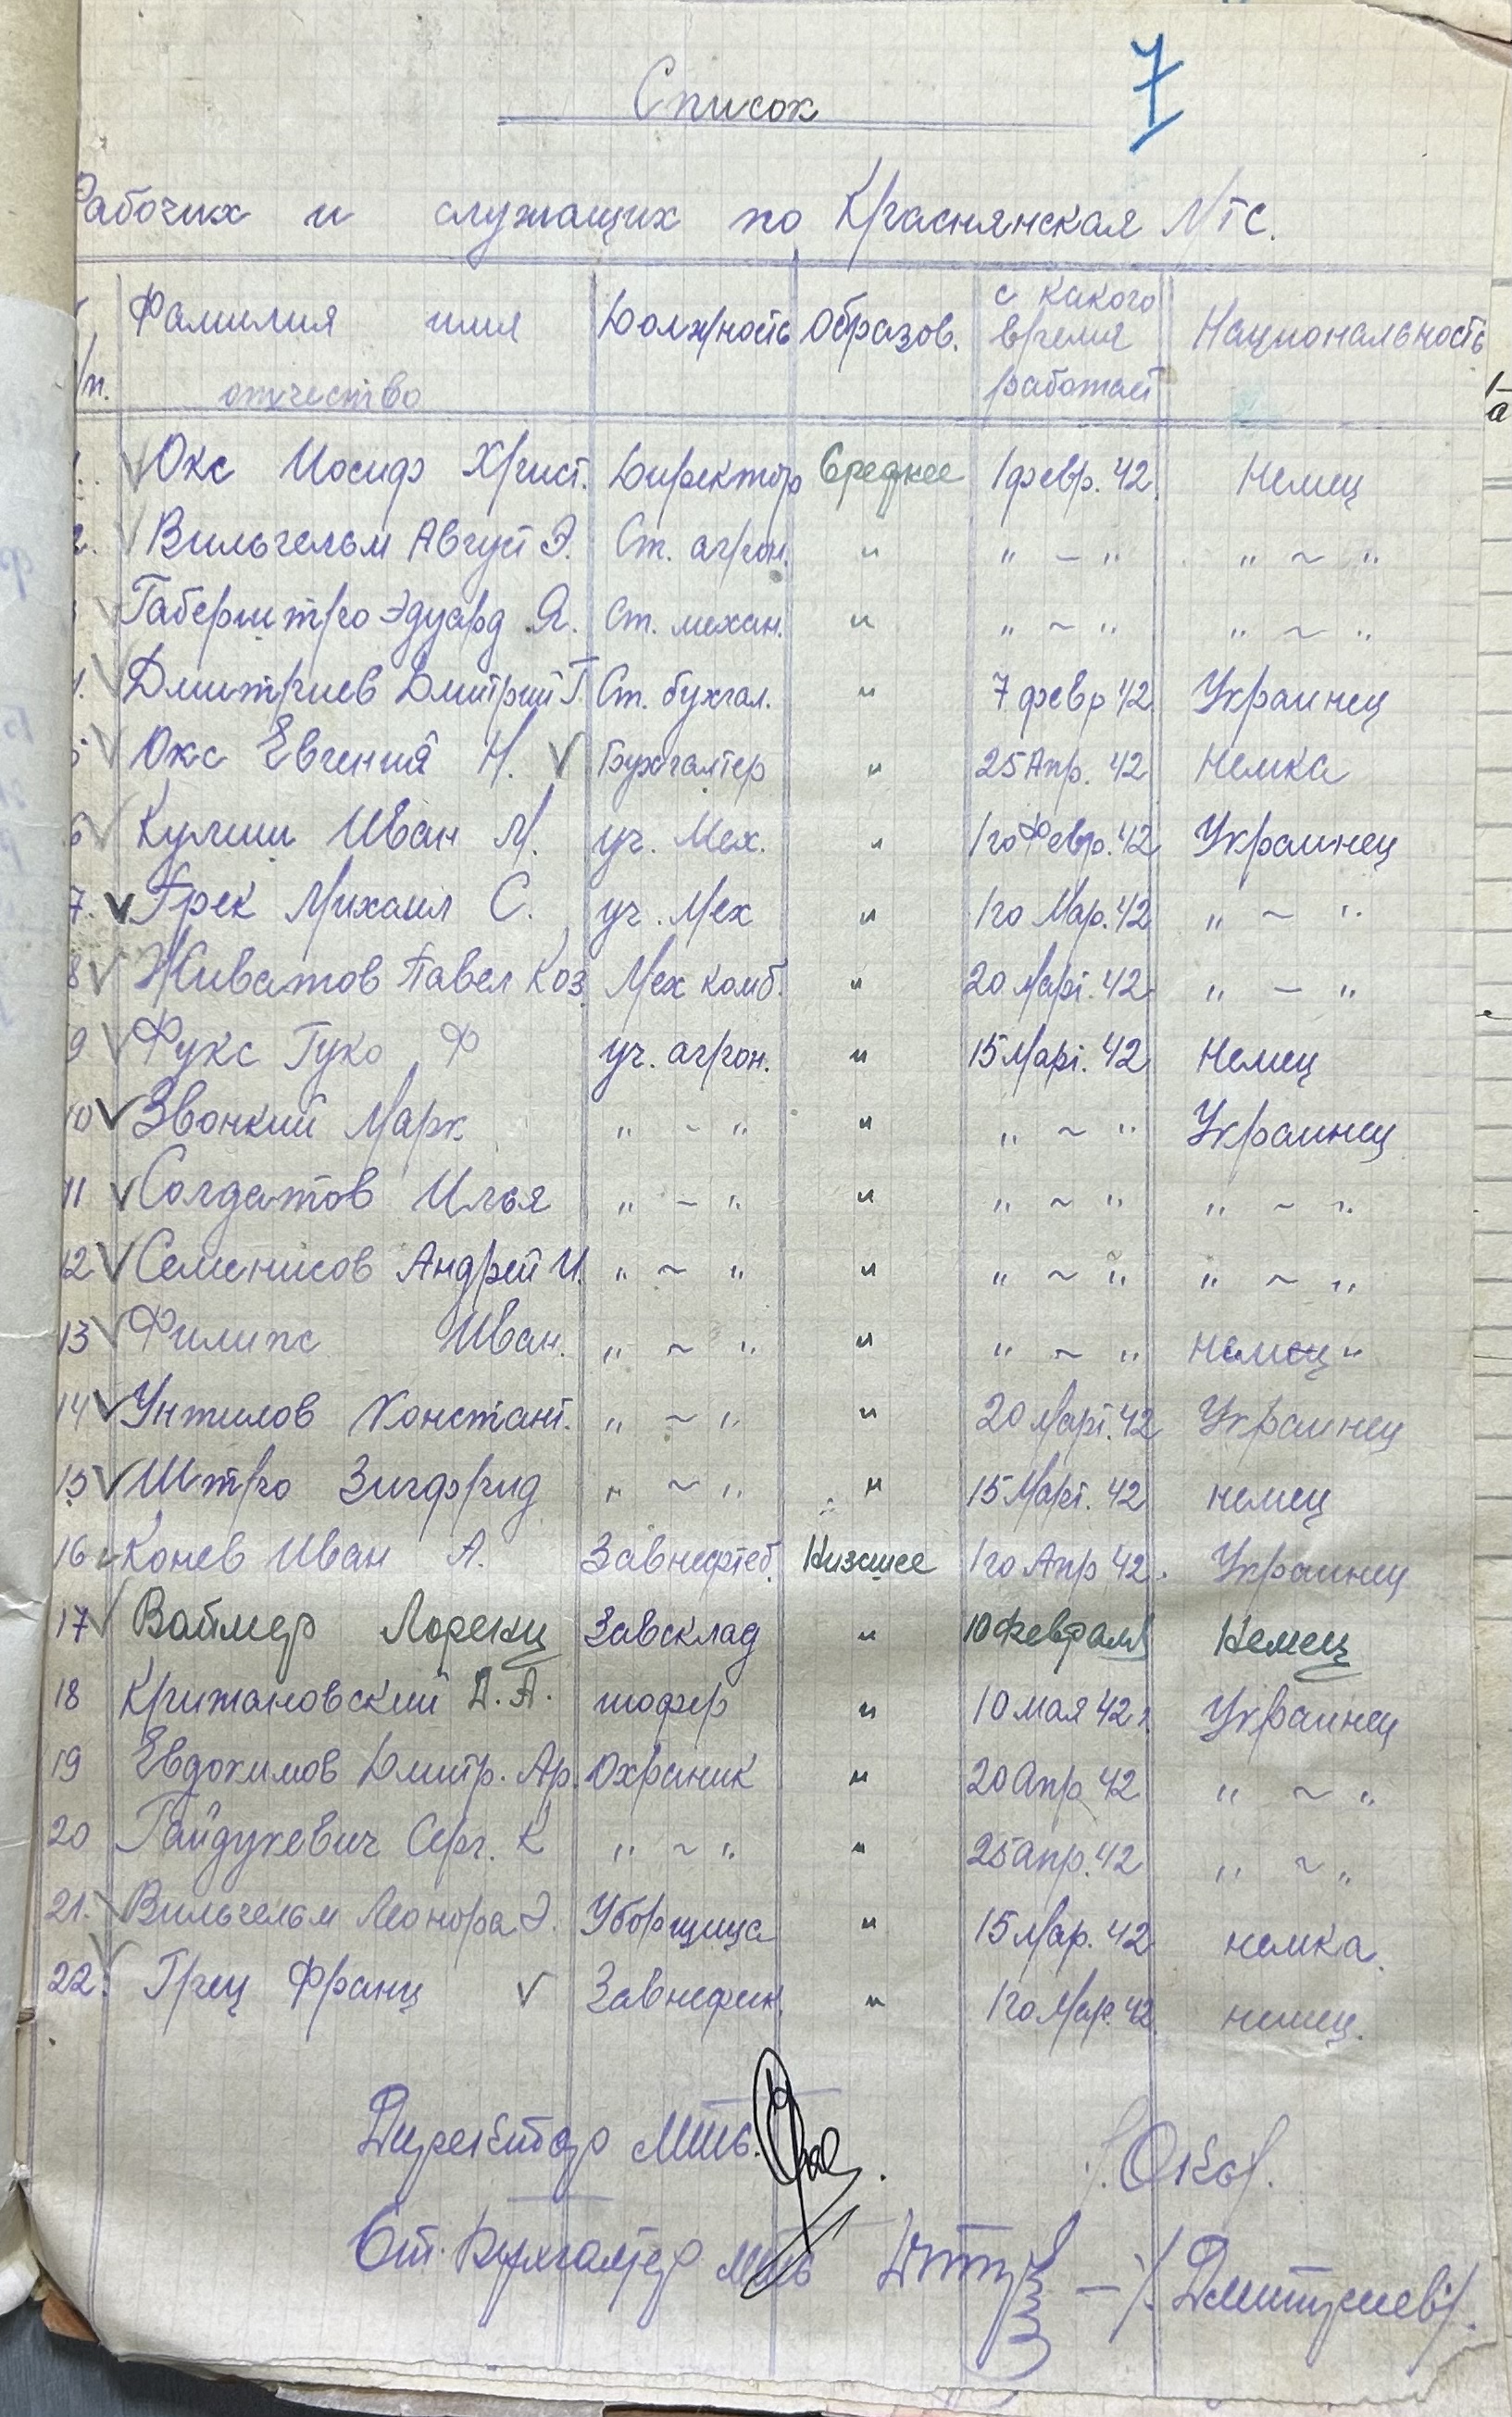 7
Список
Рабочих и служащих по Краснянская МТС.
/п. Фамилия имя отчество Должность Образов. с какого время работает Национальность
1. Окс Иосиф Христ. Директор Среднее 1 февр. 42 Немец
2. Вильгельм Август Э. Ст. агрон. " " – " " ~ "
Габерштро Эдуард Я. Ст. механ. " " ~ " " ~ "
4. Дмитриев Дмитрий Г. Ст. бухгал. " 7 февр 42 Украинец
5 Окс Евгения Н. Бухгалтер " 25 Апр. 42 Немка
6 Кулиш Иван М. уч. Мех. " 1го Февр. 42 Украинец
7. Грек Михаил С. уч. Мех " 1го Мар. 42 " ~ "
8 Живатов Павел Коз. Мех комб. " 20 Март. 42 " – "
9 Фукс Гуко Ф уч. агрон. " 15 Март. 42 Немец
10 Звонкий Марк " - " " " ~ " Украинец
11 Солдатов Илья " – " " " ~ " " ~ "
12 Семенисов Андрей И. " ~ " " " ~ " " ~ "
13 Филипс Иван. " ~ " " " ~ " немец "
14 Унтилов Констант. " ~ " " 20 Март. 42 Украинец
15 Штро Зигфрид " ~ " " 15 Март. 42 немец
16 Конев Иван А. Завнефтеб. Низшее 1го Апр 42. Украинец
17 Ваймер Лоренц Завсклад " 10 Февраля Немец
18 Крижановский Д. А. шофер " 10 мая 42 г. Украинец
19 Евдокимов Дмитр. Ар. Охраник " 20 Апр 42 " ~ "
20 Гайдукевич Серг. К " ~ " " 25 апр. 42 " ~ "
21. Вильгельм Леонора Э. Уборщица " 15 Мар. 42 немка.
22. Грец Франц " 1го Мар. 42. немец.
Директор МТС. /Окс/.
Ст. Бухгалтер МТС – /Дмитриев/.